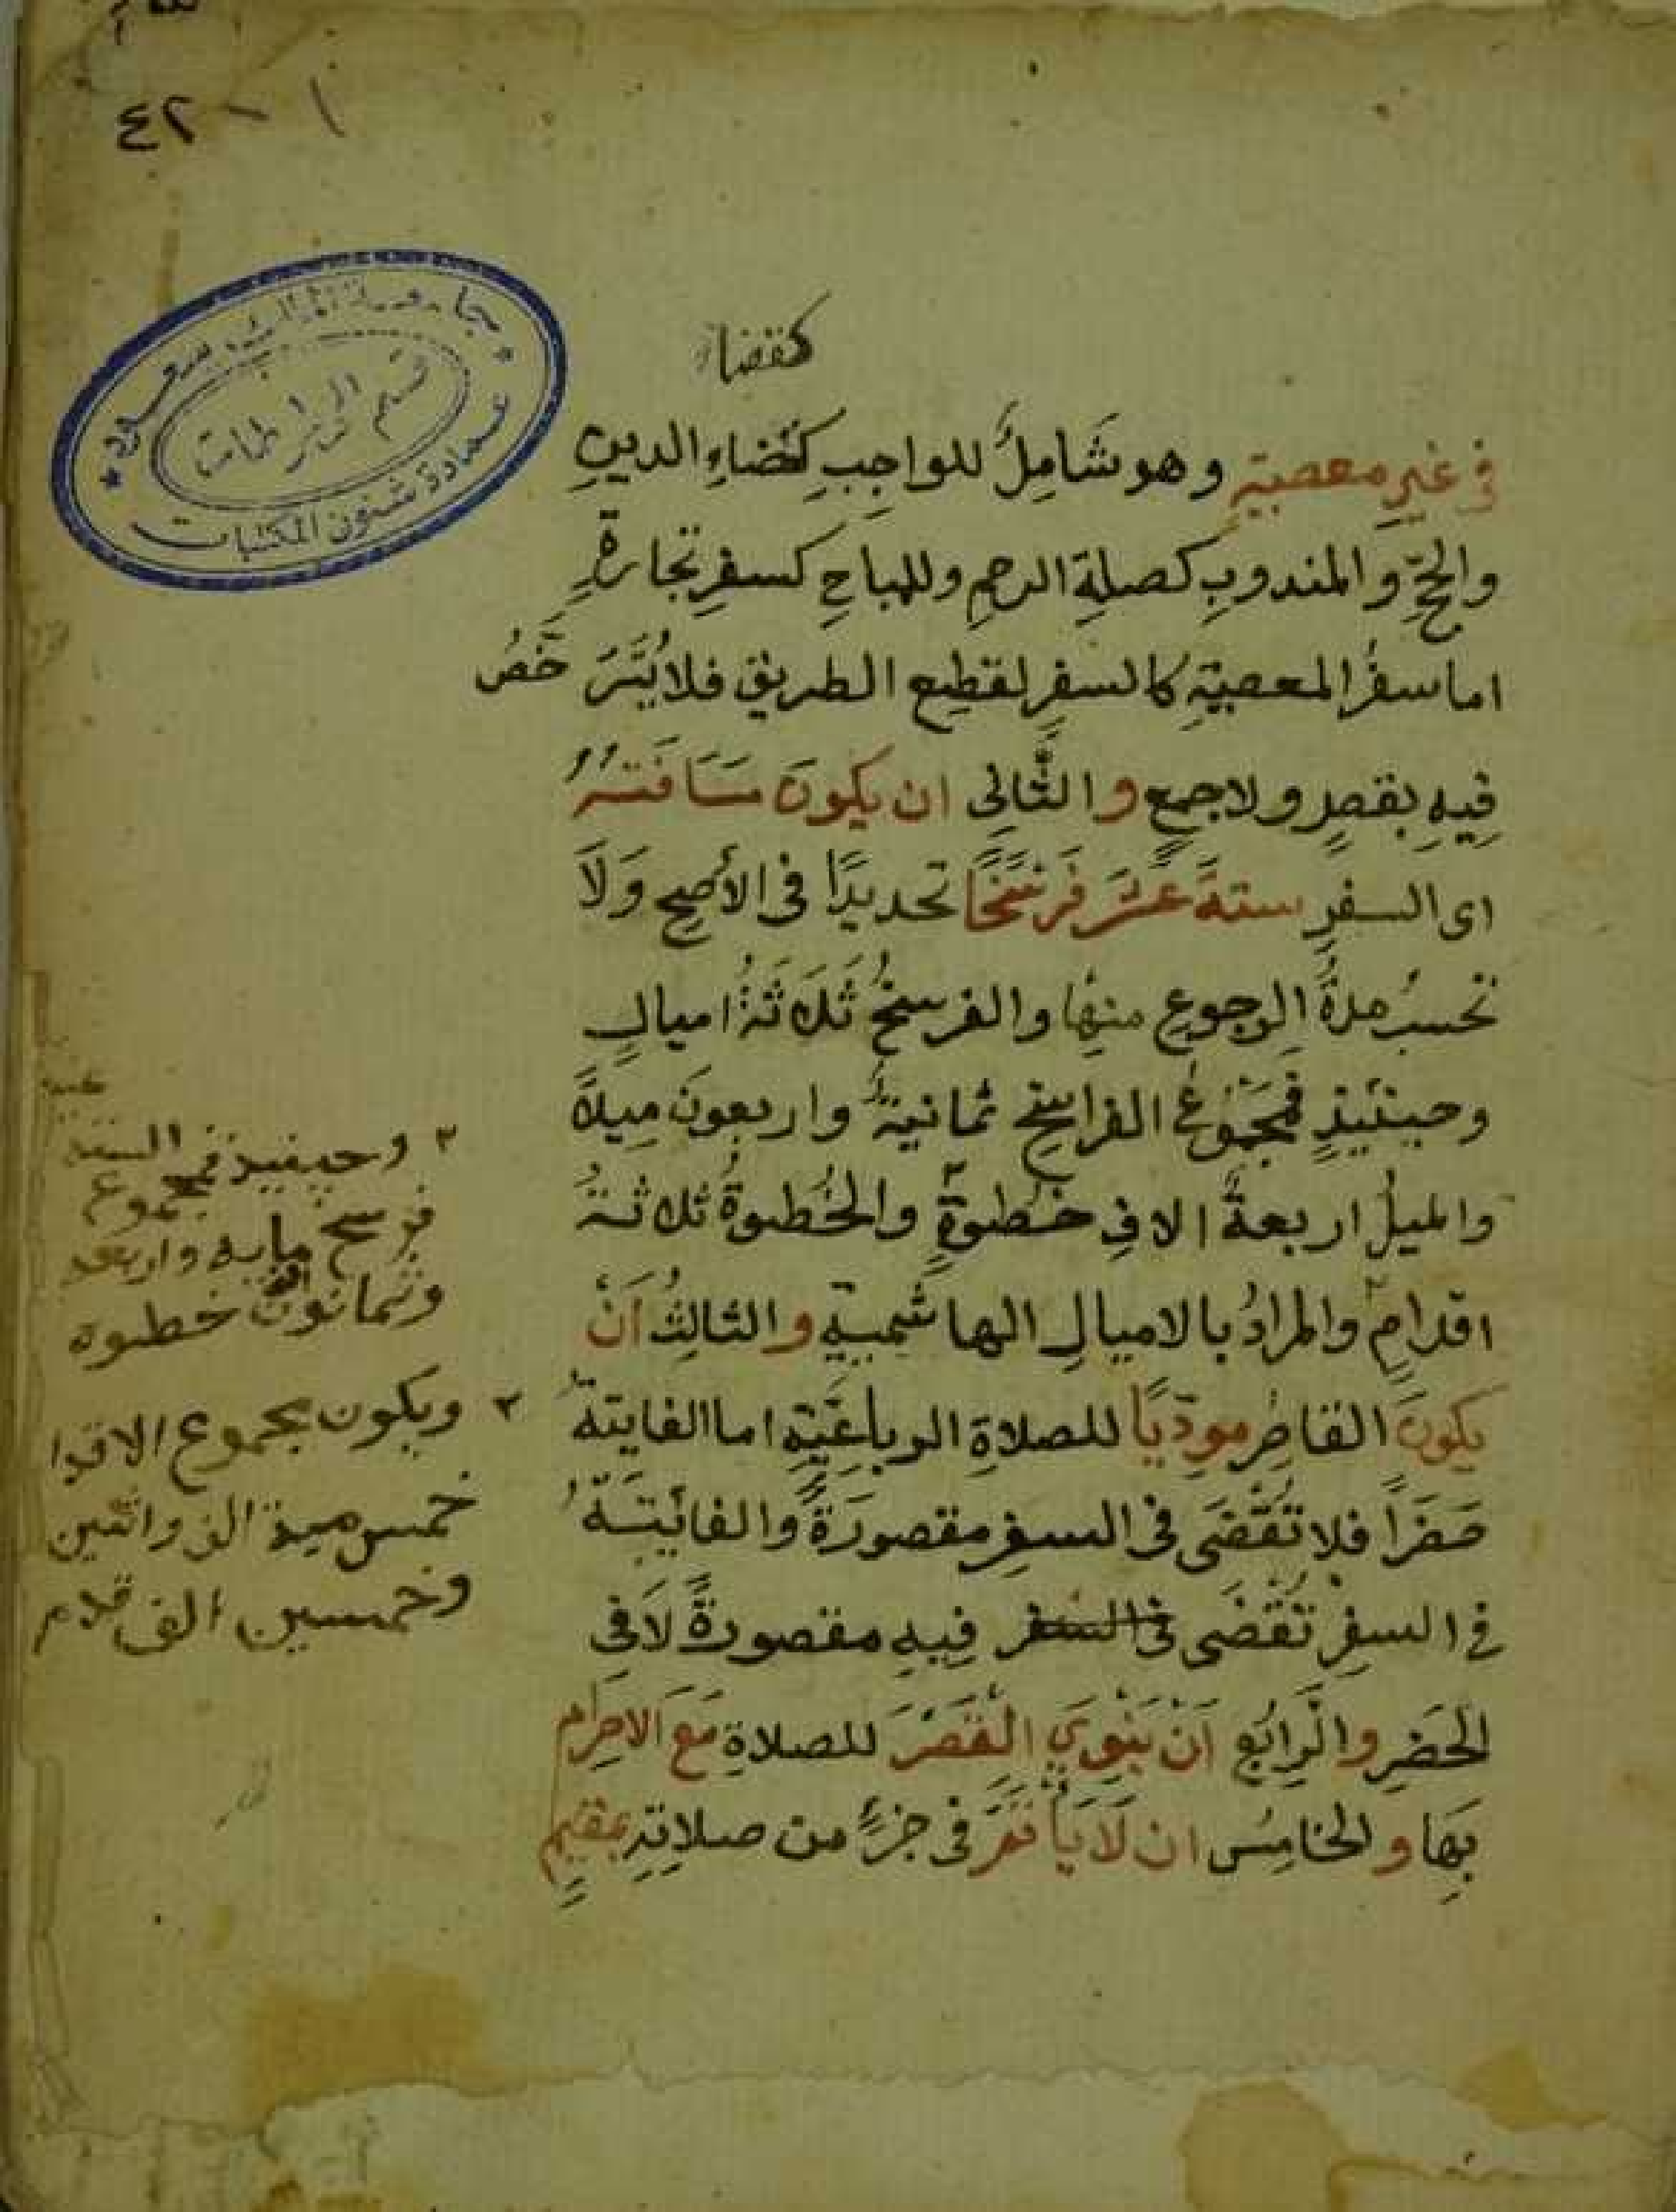 ١ - ٤٢
جامعة الملك سعود
قسم المخطوطات
عمادة شئون المكتبات
كقضاء
في غيرِ معصيةٍ وهو شَامِلٌ للواجِبِ كَقَضاءِ الدينِ
والحجِّ والمندوبِ كصلةِ الرحمِ وللمباحِ كسفرِ تجارةٍ
اما سفرُ المعصيةِ كالسفرِ لقطعِ الطريق فلا يُتَرَخَّصُ
فِيهِ بقصرٍ ولا جمعٍ والثَّانِي ان يكونَ مَسَافَتُهُ
اى السفرِ ستةَ عَشَرَ فَرسَخًا تحديدًا في الأصحِ وَلَا
تحسبُ مدةُ الرجوعِ منها والفرسخُ ثَلَاثَةُ اميالٍ
وحينئيذٍ فمجموعُ الفراسخِ ثمانيةٌ واربعونَ ميلاً
والميلُ اربعةُ الافِ خطوةٍ والخُطوةُ ثلاثةُ
اقدامٍ والمرادُ بالاميالِ الهاشميةِ والثالثُ أنْ
يكونَ القاصرُ موديًا للصلاةِ الرباعيةِ اما الفايتةُ
حضرًا فلا تُقْضَى في السفرِ مقصورةً والفايَتَةُ
في السفرِ تُقْضَى في السفر فِيهِ مقصورةً لَا فِي
الحَضَرِ والرَابعُ أَنْ يَنْوِيَ الْقَصْرَ للصلاةِ مَعَ الاحرامِ
بِهَا والخامِسُ ان لَا يَأتَمَّ في جزءٍ من صلاتِهِ بمقيمٍ
٢ وحينيذ فمجموع الستة
فرسخ مايه واربعه
وثمانون الف خطوه
٢ ويكون مجموع الاقدا
خمس مية الف واثنين
وخمسين الف قدم